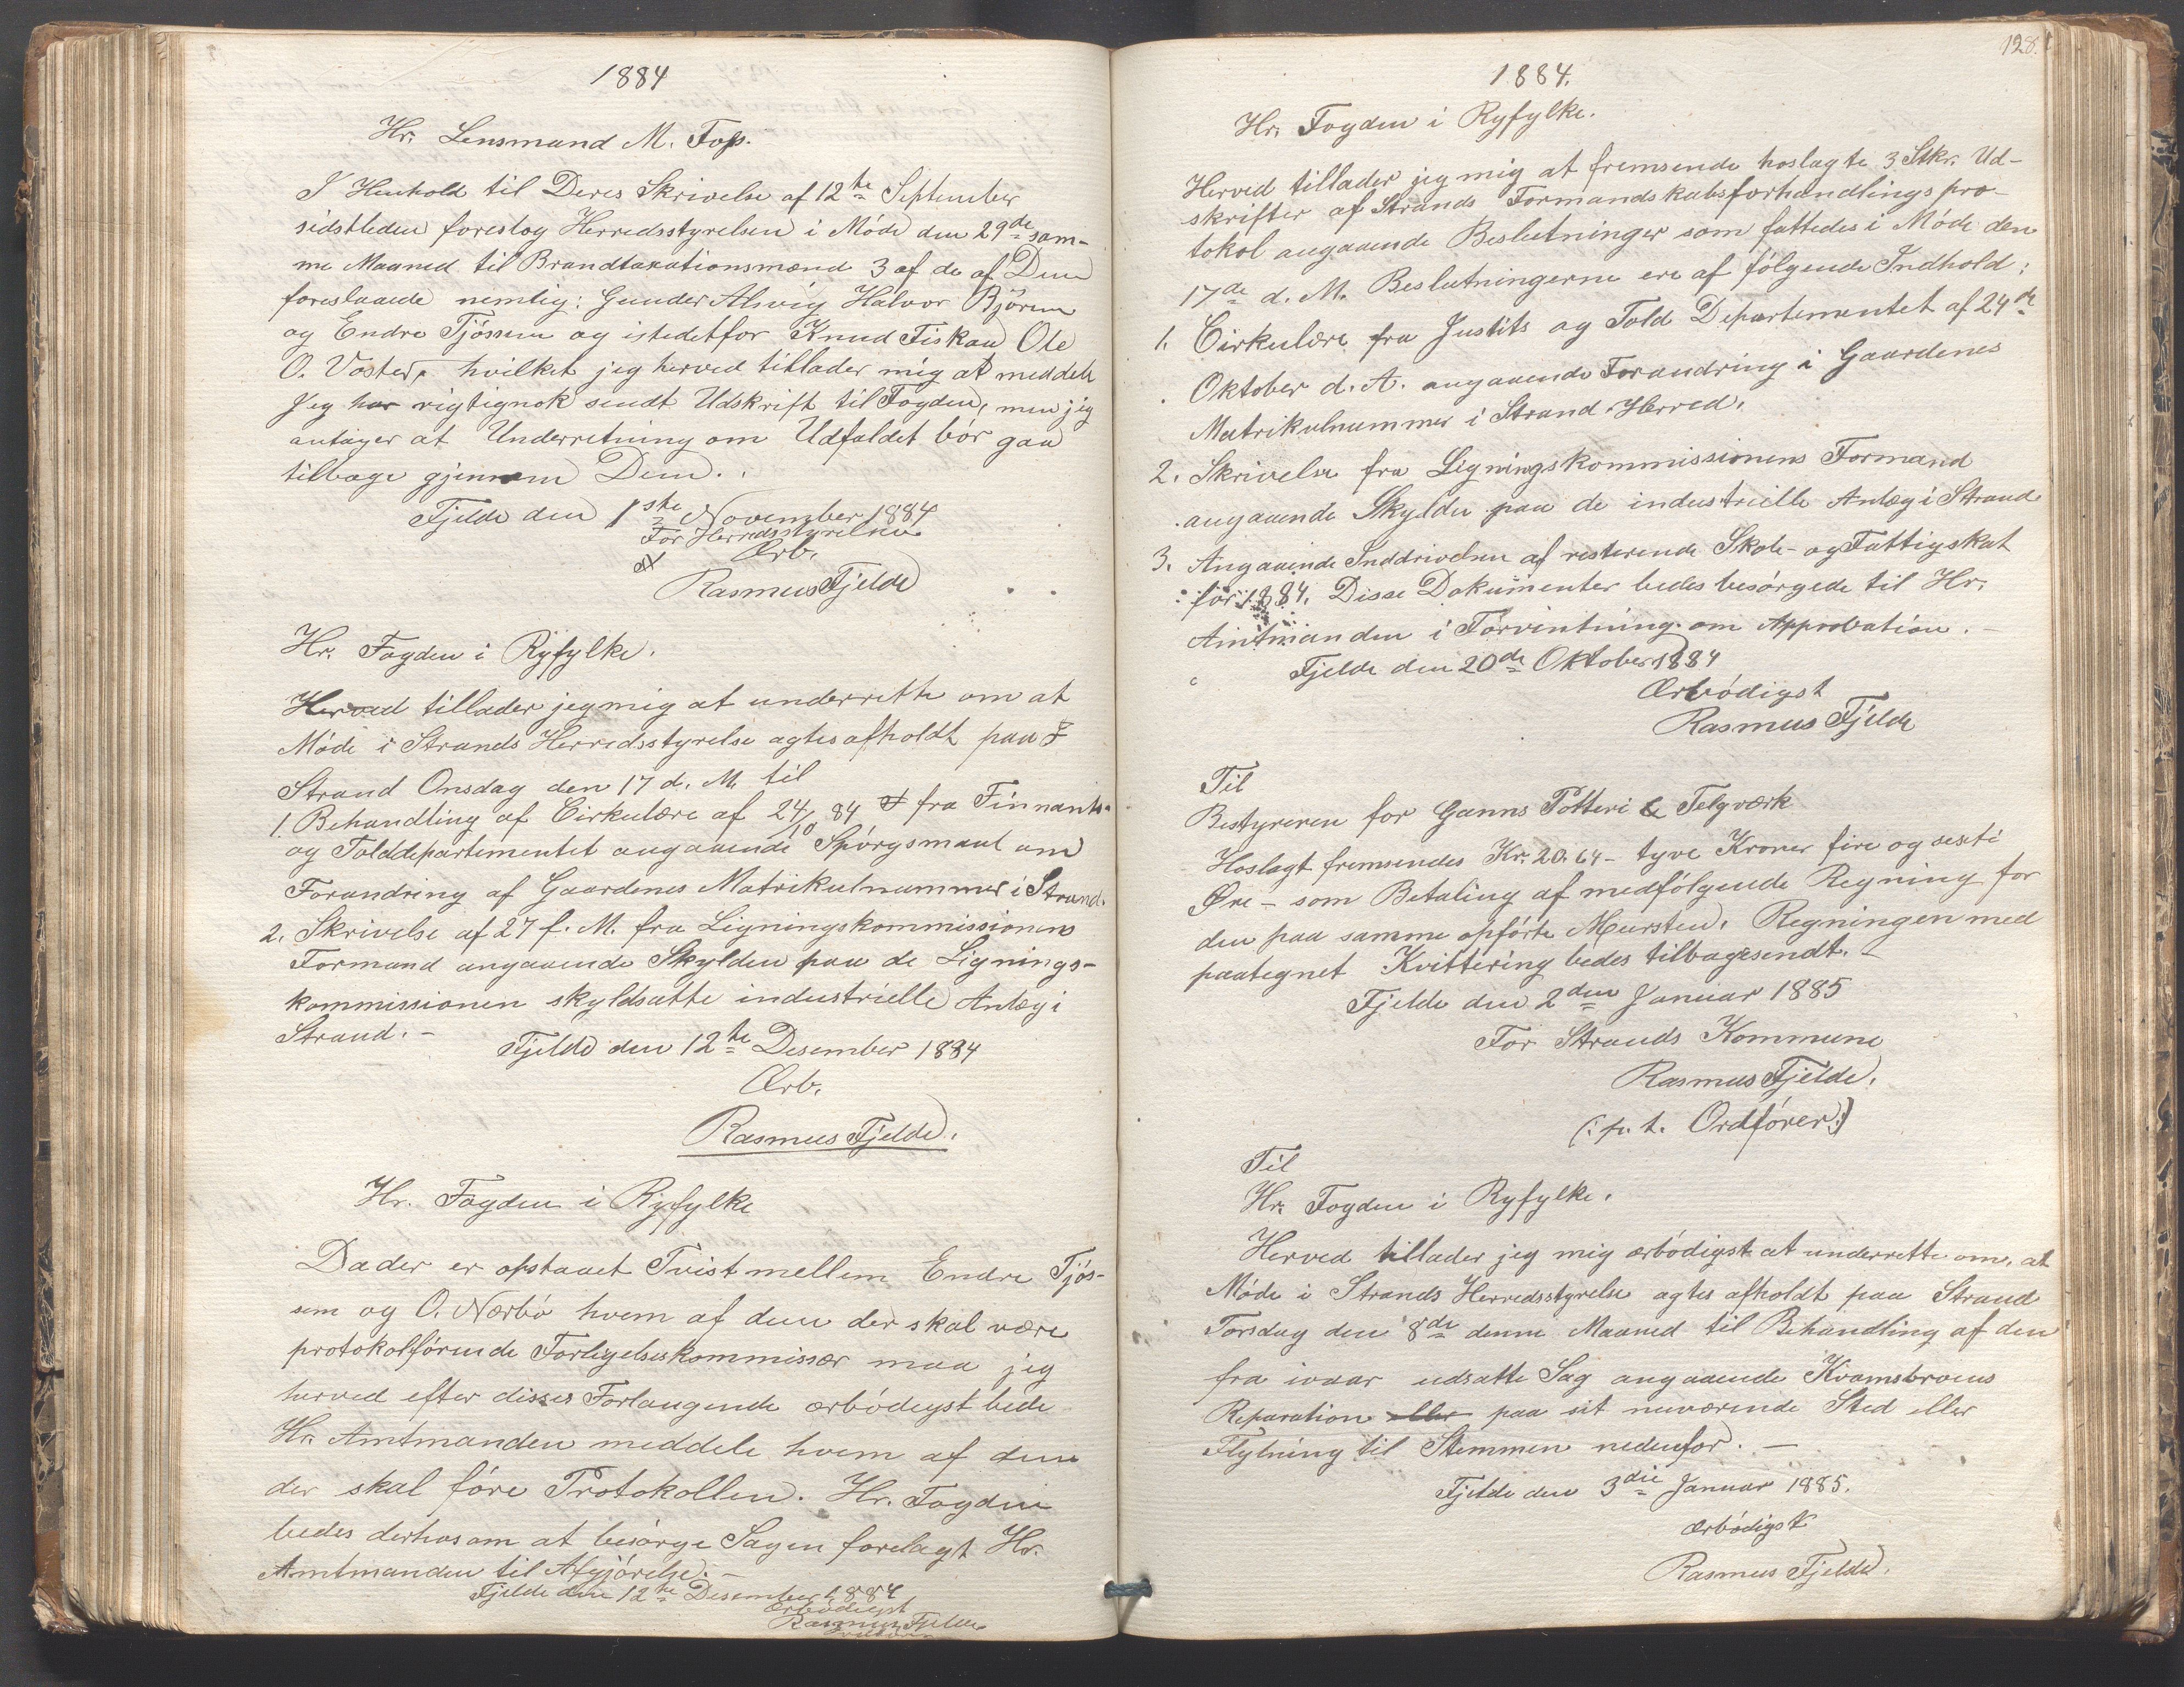 1884
Hr. Lensmand M. Foss.
I Henhold til Deres Skrivelse af 12te September
sidstleden foreslog Herredsstyrelsen i Møde den 29de sam-
me Maaned til Brandtaxationsmænd 3 af de af Dem
foreslaaede nemlig: Gunder Alsvig Halvor Bjøren
og Endre Tjøssem og istedetfor Knud Fiskaa Ole
O. Voster, hvilket jeg herved tillader mig at meddele
Jeg har rigtignok sendt Udskrift til Fogden, men jeg
antager at Underretning om Udfaldet bør gaa
tilbage gjennem Dem.
Fjelde den 1ste November 1884
For Herredsstyrelsen
Ærb.
Rasmus Fjelde
Hr. Fogden i Ryfylke.
Herved tillader jeg mig at underrette om at
Møde i Strands Herredsstyrelse agtes afholdt paa
Strand Onsdag den 17 d. M. til
1. Behandling af Cirkulære af 24/10 84 fra Finnants-
og Tolddepartementet angaaende Spørgsmaal om
Forandring af Gaardenes Matrikulnummer i Strand.
2. Skrivelse af 27 f. M. fra Ligningskommissionens
Formand angaaende Skylden paa de Lignings-
kommissionen skyldsatte industrielle Anlæg i
Strand. -
Fjelde den 12te Desember 1884
Ærb.
Rasmus Fjelde.
Hr. Fogden i Ryfylke
Da der er opstaaet Tvist mellem Endre Tjøs-
sem og O. Nærbø hvem af dem der skal være
protokolførende Forligelseskommissær maa jeg
herved efter disses Forlangende ærbødigst bede
Hr. Amtmanden meddele hvem af dem
der skal føre Protokollen. Hr. Fogden
bedes derhos om at besørge Sagen forelagt Hr.
Amtmanden til Afgjørelse. -
Fjelde den 12te Desember 1884
Ærbødigst
Rasmus Fjelde
128.
1884.
Hr. Fogden i Ryfylke.
Herved tillader jeg mig at fremsende hoslagte 3 Stkr. Ud-
skrifter af Strands Formandskabsforhandlingspro-
tokol angaaende Beslutninger som fattedes i Møde den
17de d. M. Beslutningerne ere af følgende Indhold:
1. Cirkulære fra Justits og Told Departementet af 24de
Oktober d. A. angaaende Forandring i Gaardenes
Matrikulnummer i Strand Herred.
2. Skrivelse fra Ligningskommissionens Formand
angaaende Skylden paa de industrielle Anlæg i Strand
3. Angaaende Inddrivelsen af resterende Skole- og Fattigskat
for 1884. Disse Dokumenter bedes besørgede til Hr.
Amtmanden i Forventning om Approbation.
Fjelde den 20de Oktober 1884
Ærbødigst
Rasmus Fjelde
Til
Bestyreren for Ganns Potteri & Telgværk
Hoslagt fremsendes Kr. 20.64 - tyve Kroner fire og sesti
Øre - som Betaling af medfølgende Regning for
den paa samme opførte Mursten. Regningen med
paategnet Kvittering bedes tilbagesendt. -
Fjelde den 2den Januar 1885
For Strands Kommune
Rasmus Fjelde.
(: p. t. Ordfører :)
Til
Hr. Fogden i Ryfylke.
Herved tillader jeg mig ærbødigst at underrette om, at
Møde i Strands Herredsstyrelse agtes afholdt paa Strand
Torsdag den 8de denne Maaned til Behandling af den
fra ivaar udsatte Sag angaaende Kvamsbroens
Reparation eller paa sit nuværende Sted eller
Flytning til Stemmen nedenfor. -
Fjelde den 3die Januar 1885.
ærbødigst
Rasmus Fjelde.